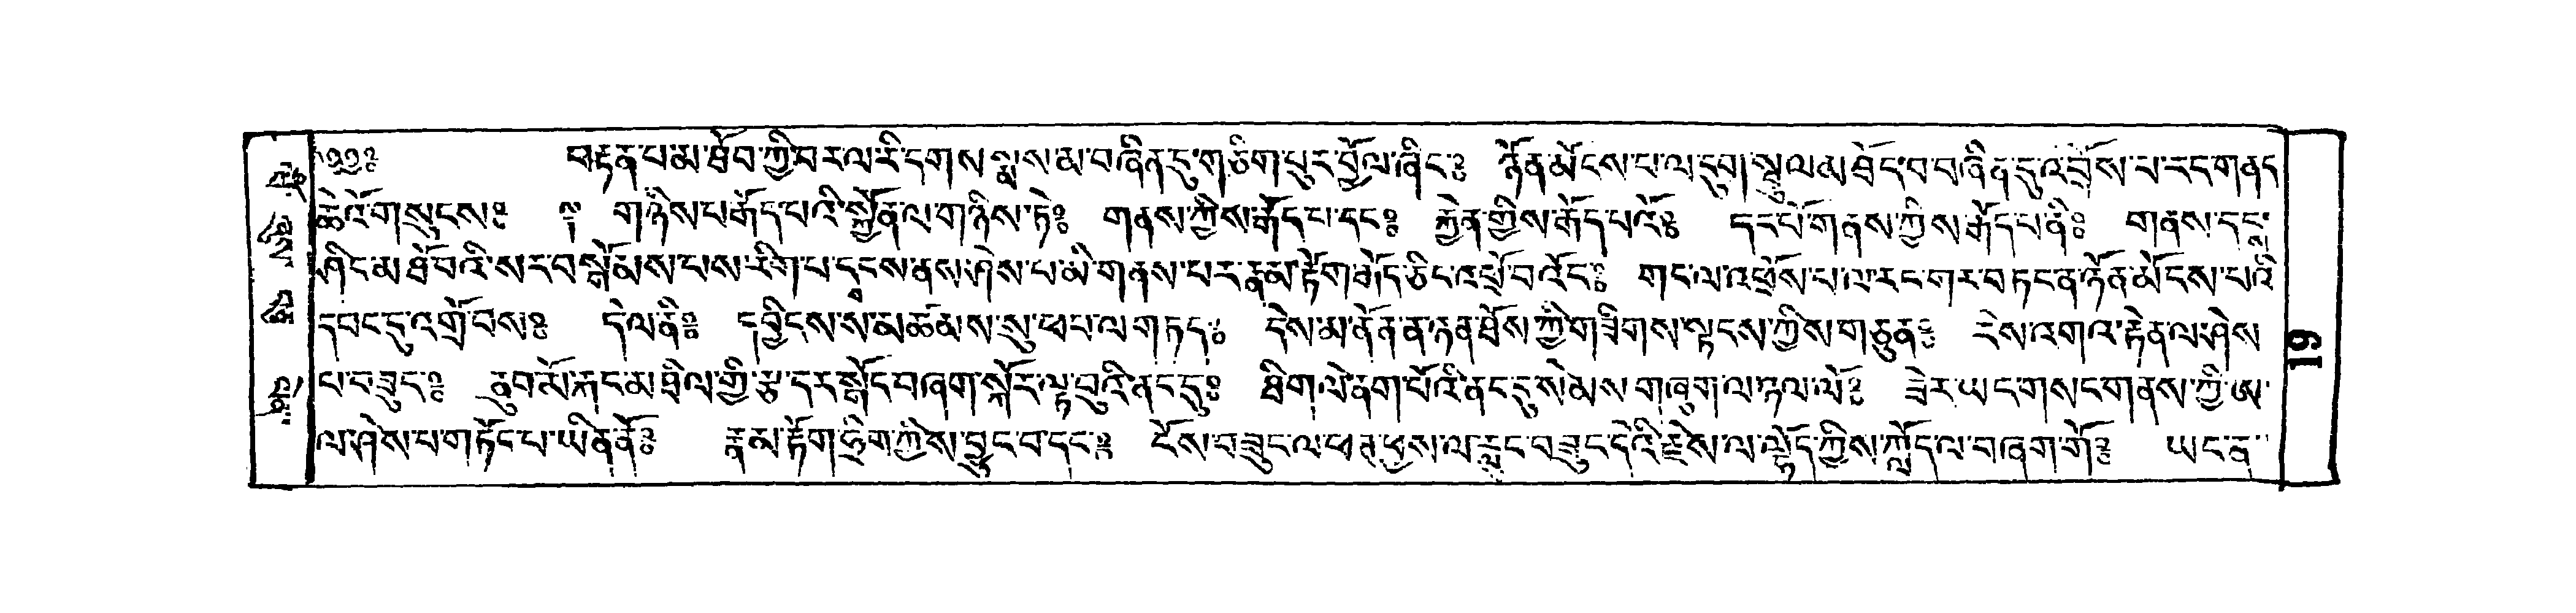 ༄༅༅༔ བརྟན་པ་མ་ཐོབ་ཀྱི་བར་ལ་རི་དགས་སྨས་མ་བཞིན་དུ་གཅིག་པུར་བྱོལ་ཞིང་༔ ཉོན་མོངས་པ་ལ་དུག་སྦྲུལ་མཐོང་བ་བཞིན་དུ་འབྲོས་པ་རང་གནད་
ཆེའོ་གསུངས༔ ༈ གཉིས་པ་རྒོད་པའི་སྐྱོན་ལ་གཉིས་ཏེ༔ གནས་ཀྱིས་རྒོད་པ་དང་༔ རྐྱེན་གྱིས་རྒོད་པའོ༔ དང་པོ་གནས་ཀྱིས་རྒོད་པ་ནི༔ གནས་དང་
ཤིང་མཐོ་བའི་སར་བསྒོམས་པས་རིག་པ་དྭངས་ནས་ཤེས་པ་མི་གནས་པར་རྣམ་རྟོག་རྒོད་ཅིང་འཕྲོ་བ་འོང་༔ གང་ལ་འཕྲོས་པ་ལ་རང་གར་བཏང་ན་ཉོན་མོངས་པའི་
དབང་དུ་འགྲོ་བས༔ དེ་ལ་ནི༔ དབྱིངས་ས་མཚམས་སུ་ཕབ་ལ་གཏད༔ དེས་མ་ནོན་ན་ཉན་ཐོས་ཀྱི་གཟིགས་སྟངས་ཀྱིས་གཅུན༔ རེས་འགའ་རྟེན་ལ་ཤེས་
པ་བཟུང་༔ ནུབ་མོ་རྐང་མཐིལ་གྱི་རྩ་དར་སྒོད་བཞག་སྐོར་ལྟ་བུའི་ནང་དུ༔ ཐིག་ལེ་ནག་པོའི་ནང་དུ་སེམས་གཞུག་ལ་ཉལ་ལོ༔ ཟེར་ཡང་གསང་གནས་ཀྱི་ཨ་
ལ་ཤེས་པ་གཏོང་པ་ཡིན་ནོ༔ རྣམ་རྟོག་ཧྲིག་གིས་བྱུང་བ་དང་༔ ངོས་བཟུང་ལ་ཕན་ཕྱས་ལ་རླུང་བཟུང་དེའི་རྗེས་ལ་ལྷོད་ཀྱིས་ཀློད་ལ་བཞག་གོ༔ ཡང་ན་
༡